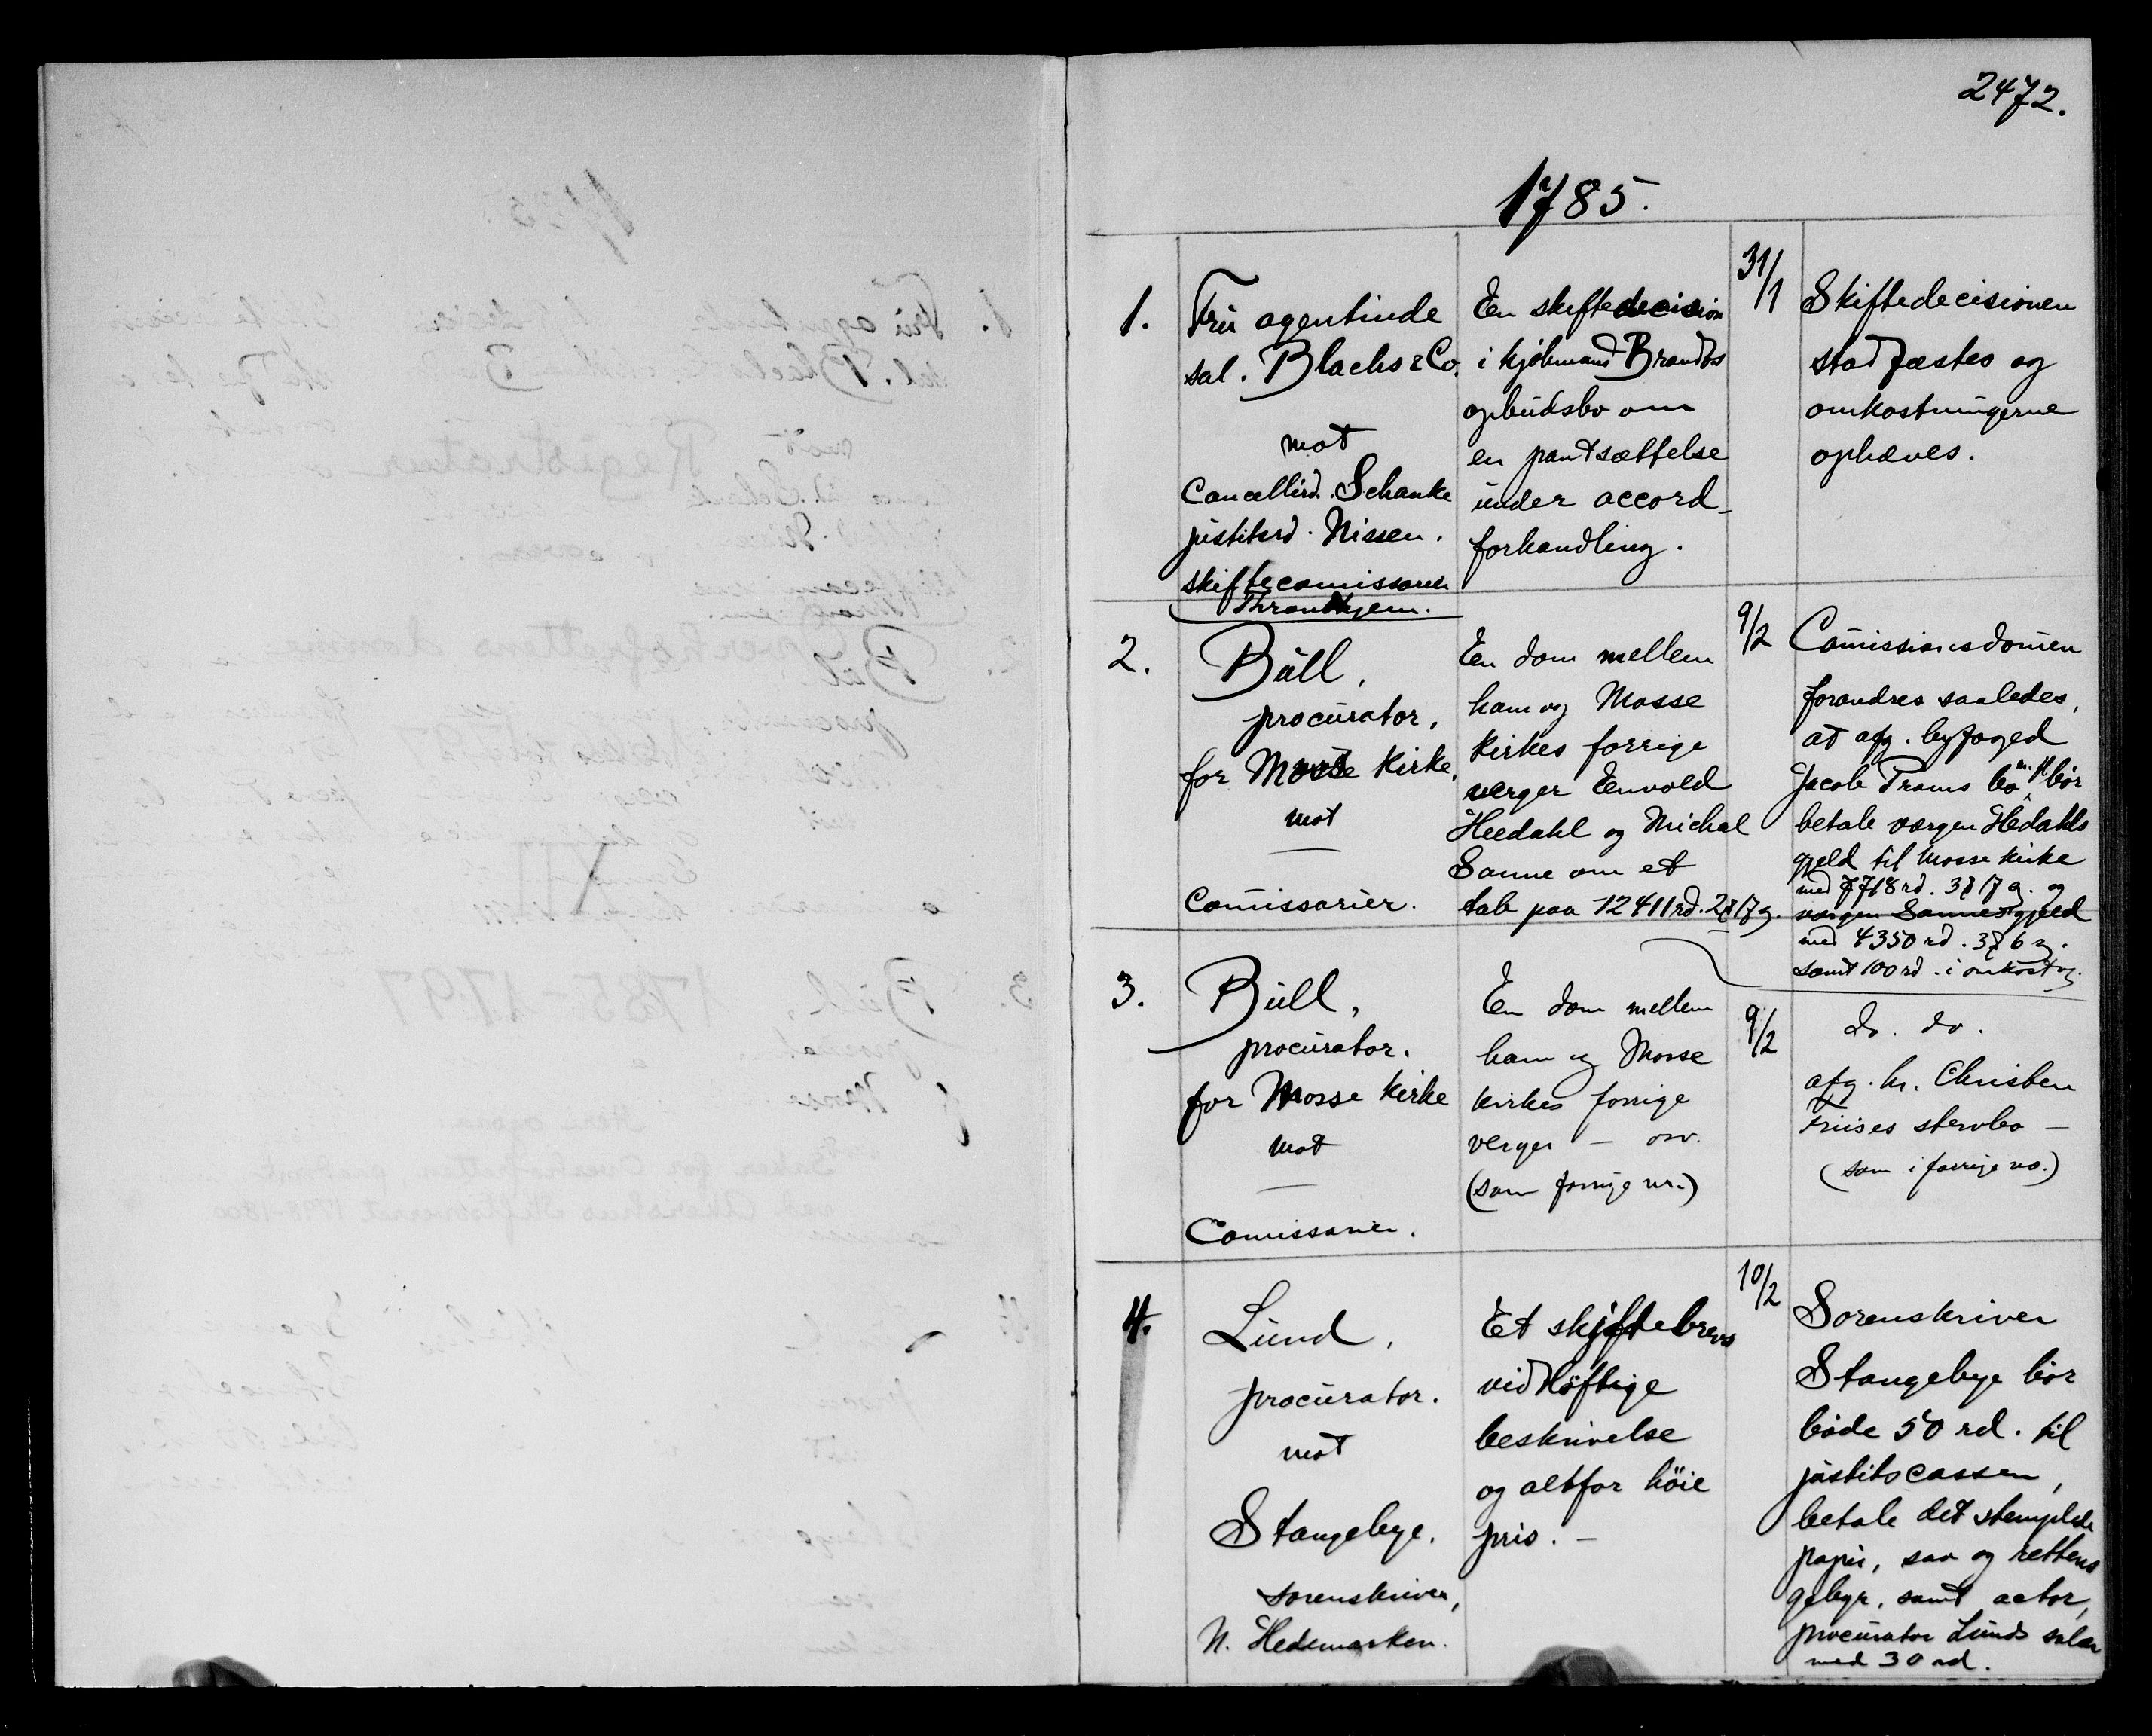 2472.
1785.
1.
Frü agentinde
sal. Blachs & Co.
mot
Cancellird. Schanke
justitsrd. Nissen.
skiftecomissarier
Throndhjem.
En skiftedecision
i kjöbmand Brandts
opbüdsbo om
en pantsættelse
ünder accord-
forhandling.
31/1
Skiftedecisionen
stadfæstes og
omkostningerne
ophæves.
2.
Büll,
procürator,
for Mosse Kirke,
mot
Comissarier.
En dom mellem
ham og Mosse
Kirkes forrige
verger Envold
Heedahl og Michal
Sanne om et
tab paa 12411 rd. 2 17
9/2
Comissionsdomen
forandres saaledes,
at afg. byfoged
Jacob Prams bo m. fl. bör
betale værgen Hedahls
gjeld til Mosse Kirke
med 7718 rd. 3 17 og
værgen Sannes gjeld
med 4350 rd. 3 6
samt 100 rd. i omkostn.
3.
Büll,
procürator.
for Mosse Kirke
mot
Comissarier.
En dom mellem
ham og Mosse
kirkes forrige
verger - osv.
(som forrige nr.)
9/2
do. do.
afg. hr. Christen
Friises stervbo -
(som i forrige no.)
4.
Lünd,
procürator.
mot
Stangebye.
sorenskriver,
N. Hedemarken.
Et skjöftebrevs
vidtlöftige
beskrivelse
og altfor höie
pris. -
10/2
Sorenskriver
Stangebye bör
böde 50 rd. til
jüstitscassen,
betale det stemplede
papir, saa og rettens
gebyr, samt actor,
procürator Lünds salær
med 30 rd.